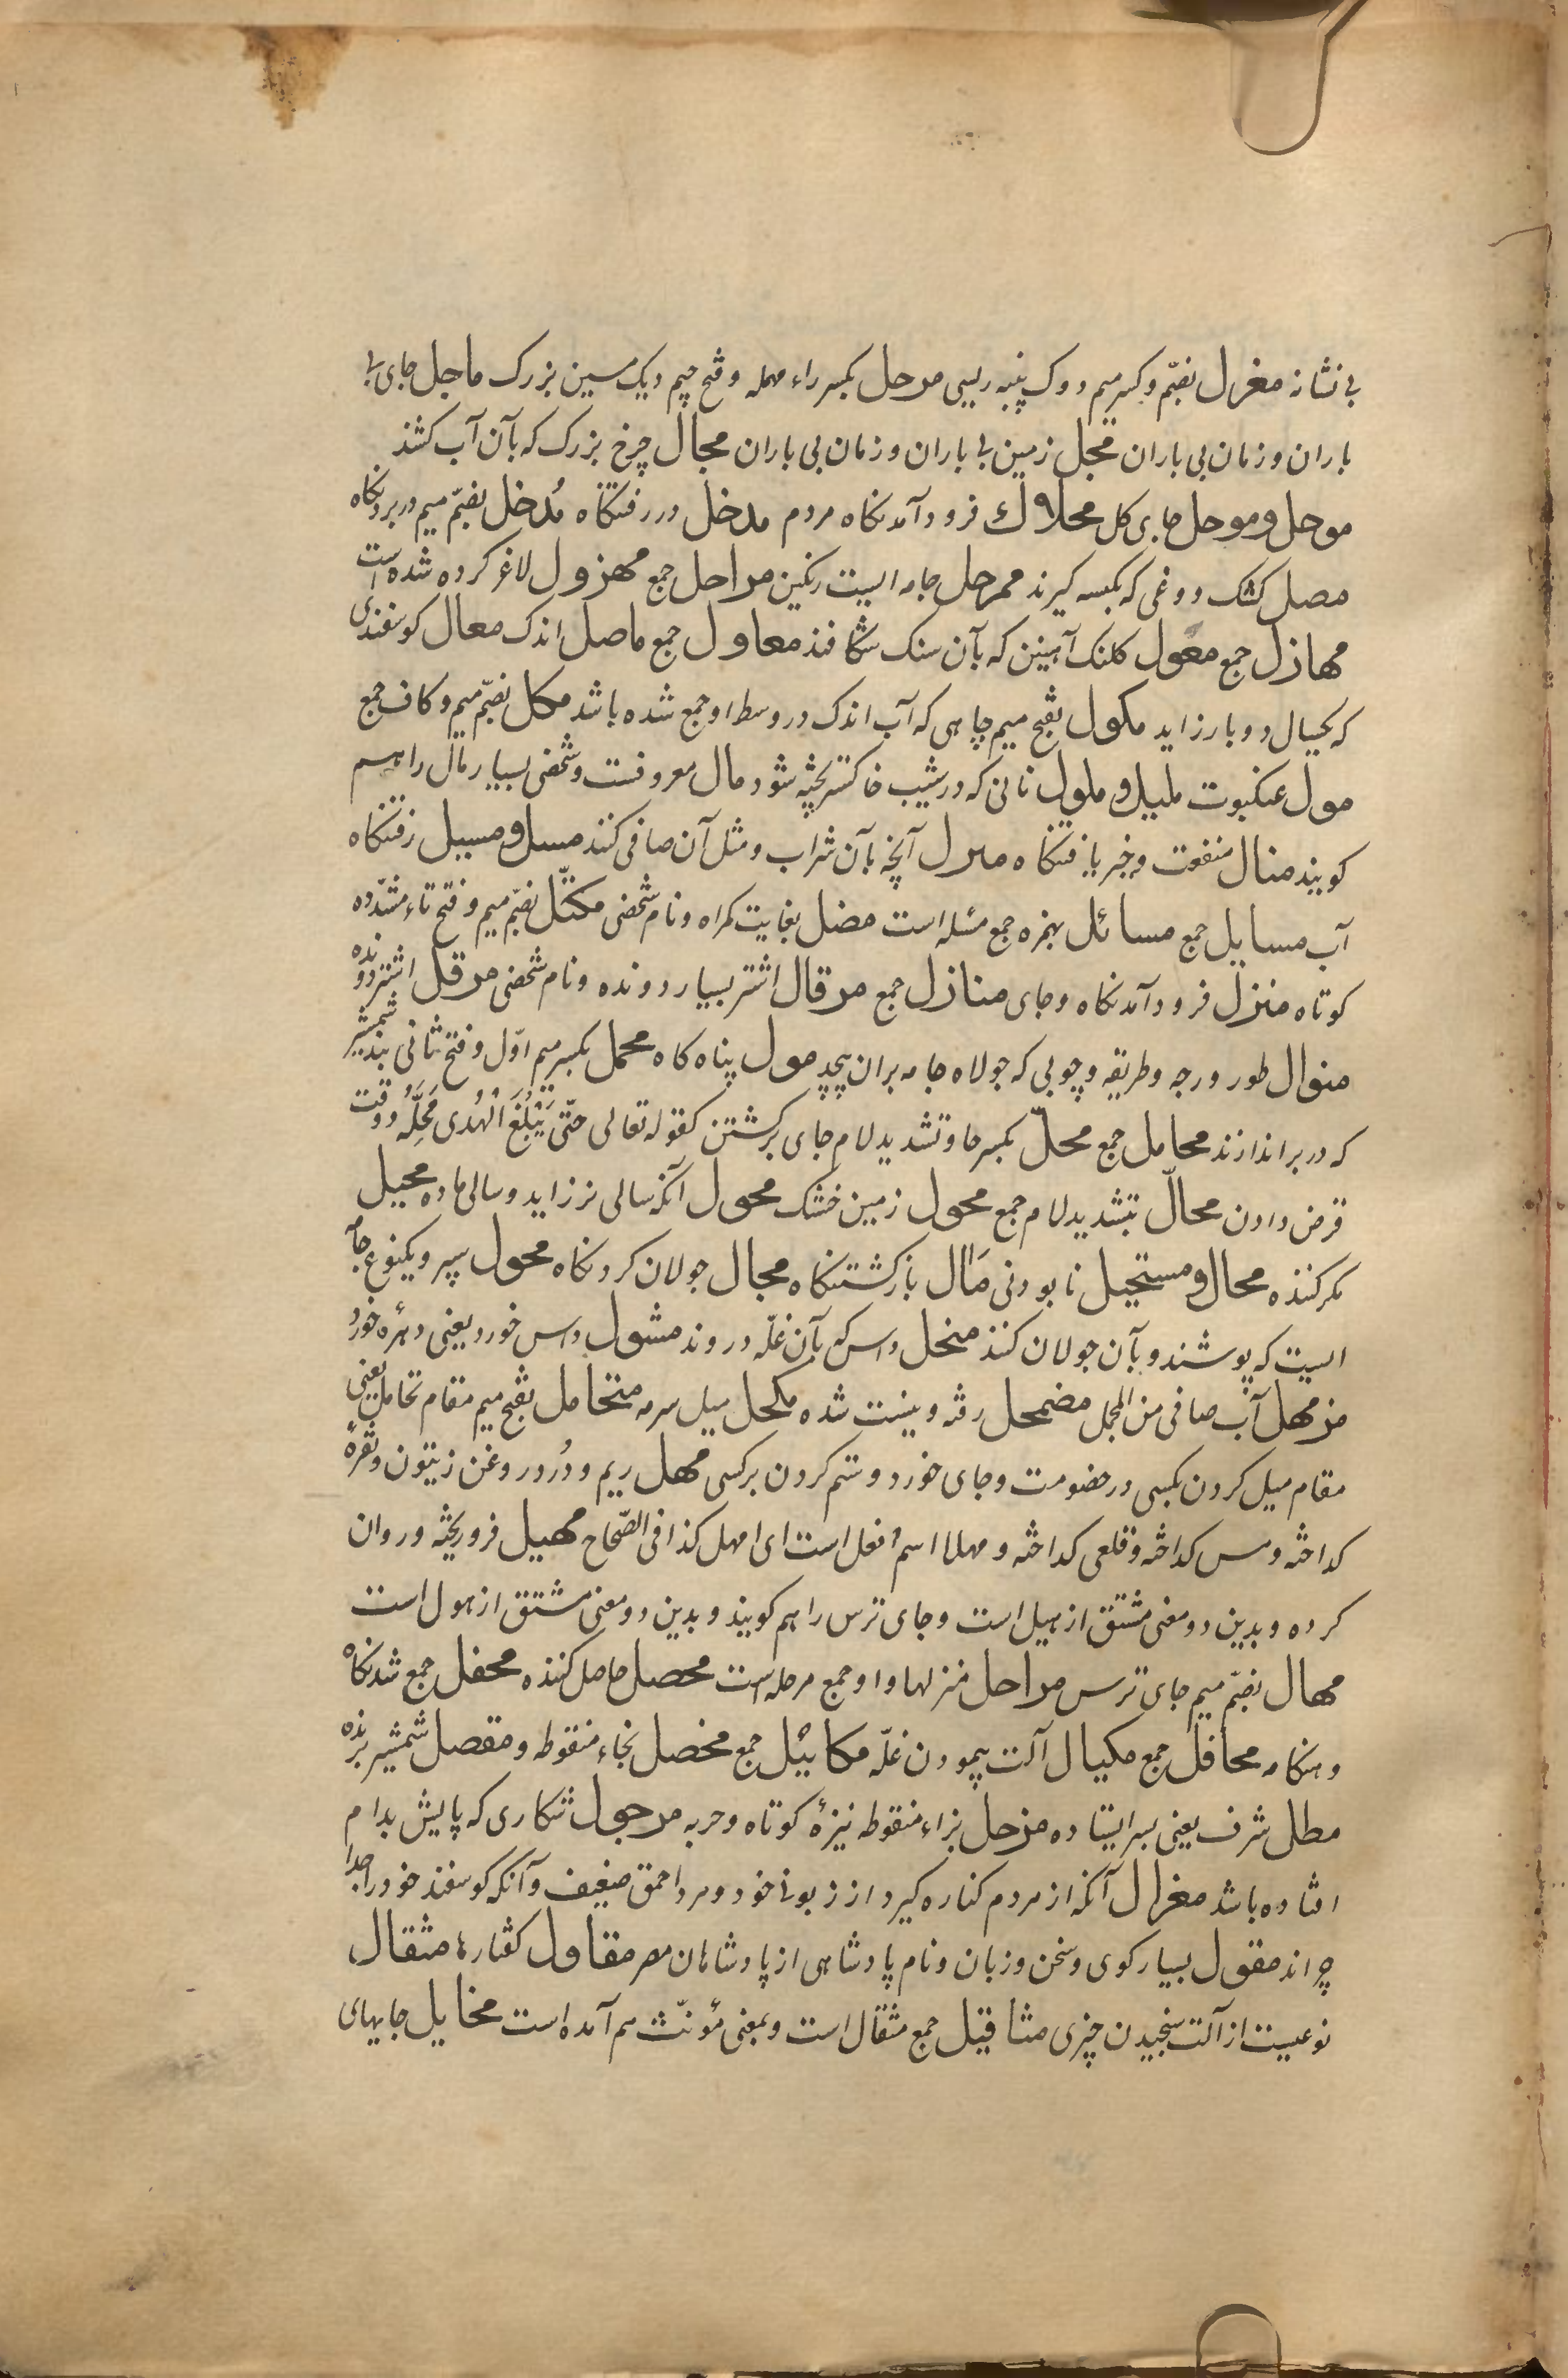 بی نشانه مغزل بضمّ وکسر میم دوک پنبه ریسی مرحل بکسر راء مهمله وفتح جیم دیک مسین بزرک ماحل جای بی
باران وزمان بی باران محجل زمین بی باران وزمان بی باران محجال چرخ بزرک که بآن آب کشند
موحل وموحل جای کل محلال فرود آمدنکاه مردم مدخل در رفتنکاه مُدخل بضمّ میم در بردنکاه
مصل کشک دوغی که بکیسه کیرند ممرحل جامه ایست رنکین مراحل جمع مهزول لاغر کرده شده است
مهازل جمع معول کلنک آهنین که بآن سنک شکافند معاول جمع ماصل اندک معال کوسفندی
که بکسال دوبار زاید مکول بفتح میم چاهی که آب اندک در وسط او جمع شده باشد مکل بضمّ میم وکاف جمع
مول عنکبوت ملیل و ملول نانی که در شیب خاکستر پخته شود مال معروفست وشخصی بسیار مال را هم
کویند منال منفعت وخیر یافتنکاه مبزل آنچه بآن شراب ومثل آن صافی کنند مسل ومسیل رفتنکاه
آب مسایل جمع مسائل بهمزه جمع مسئله است مضل بغایت کمراه ونام شخصی مکتّل بضمّ میم وفتح تاء مشدّده
کوتاه منزل فرود آمدنکاه وجای منازل جمع مرقال اشتر بسیار رونده ونام شخصی مرقل اشتر دونده
منوال طور ودرجه وطریقه وچوبی که جولاه جامه بران پیچد مول پناه کاه محمل بکسر میم اوّل وفتح ثانی بند شمشیر
که در بر اندازند محامل جمع محلّ بکسر حا وتشدید لام جای برکشتن کقوله تعالی حتّی یَبْلُغَ الْهَدْیُ مَحِلَّهُ ووقت
قرض دادن محالّ بتشدید لام جمع محول زمین خشک محول آنکه سالی نر زاید وسالی ماده محیل
مکر کننده محال ومستحیل نابودنی مَآل بازکشتنکاه مجال جولان کردنکاه محول سپر ویکنوع جامه
ایست که پوشند وبآن جولان کنند منحل داس که بآن غلّه دروند مشول داس خورد یعنی دهرهٔ خورد
مزمهل آب صافی من المجمل مضمحل رفته ونیست شده مکحل میل سرمه متحامل بفتح میم مقام تحامل یعنی
مقام میل کردن بکسی در خصومت وجای خورد وستم کردن بر کسی مهل ریم ودُرد وروغن زیتون ونقرهٔ
کداخته ومس کداخته وقلعی کداخته و مهلا اسم فعل است ای امهل کذا فی الصّحاح مهیل فرو ریخته وروان
کرده وبدین دو معنی مشتق از هیل است وجای ترس را هم کویند وبدین دو معنی مشتق از هول است
مهال بضمّ میم جای ترس مراحل منزلها واو جمع مرحله است محصل حاصل کننده محفل جمع شدنکاه
وهنکامه محافل جمع مکیال آلت پیمودن غلّه مکائیل جمع مخصل بخاء منقوطه ومقصل شمشیر برنده
مطل شرف یعنی بسر ایستاده مزحل بزاء منقوطه نیزهٔ کوتاه وحربه مرجول شکاری که پایش بدام
افتاده باشد مغرال آنکه از مردم کناره کیرد از زبونی خود ومرد احمق ضعیف وآنکه کوسفند خود را جدا
چراند مقول بسیار کوی وسخن وزبان ونام پادشاهی از پادشاهان مصر مقاول کفتارها مثقال
نوعیست از آلت سنجیدن چیزی مثاقیل جمع مثقال است وبمعنی مؤنّث هم آمده است مخایل جایهای